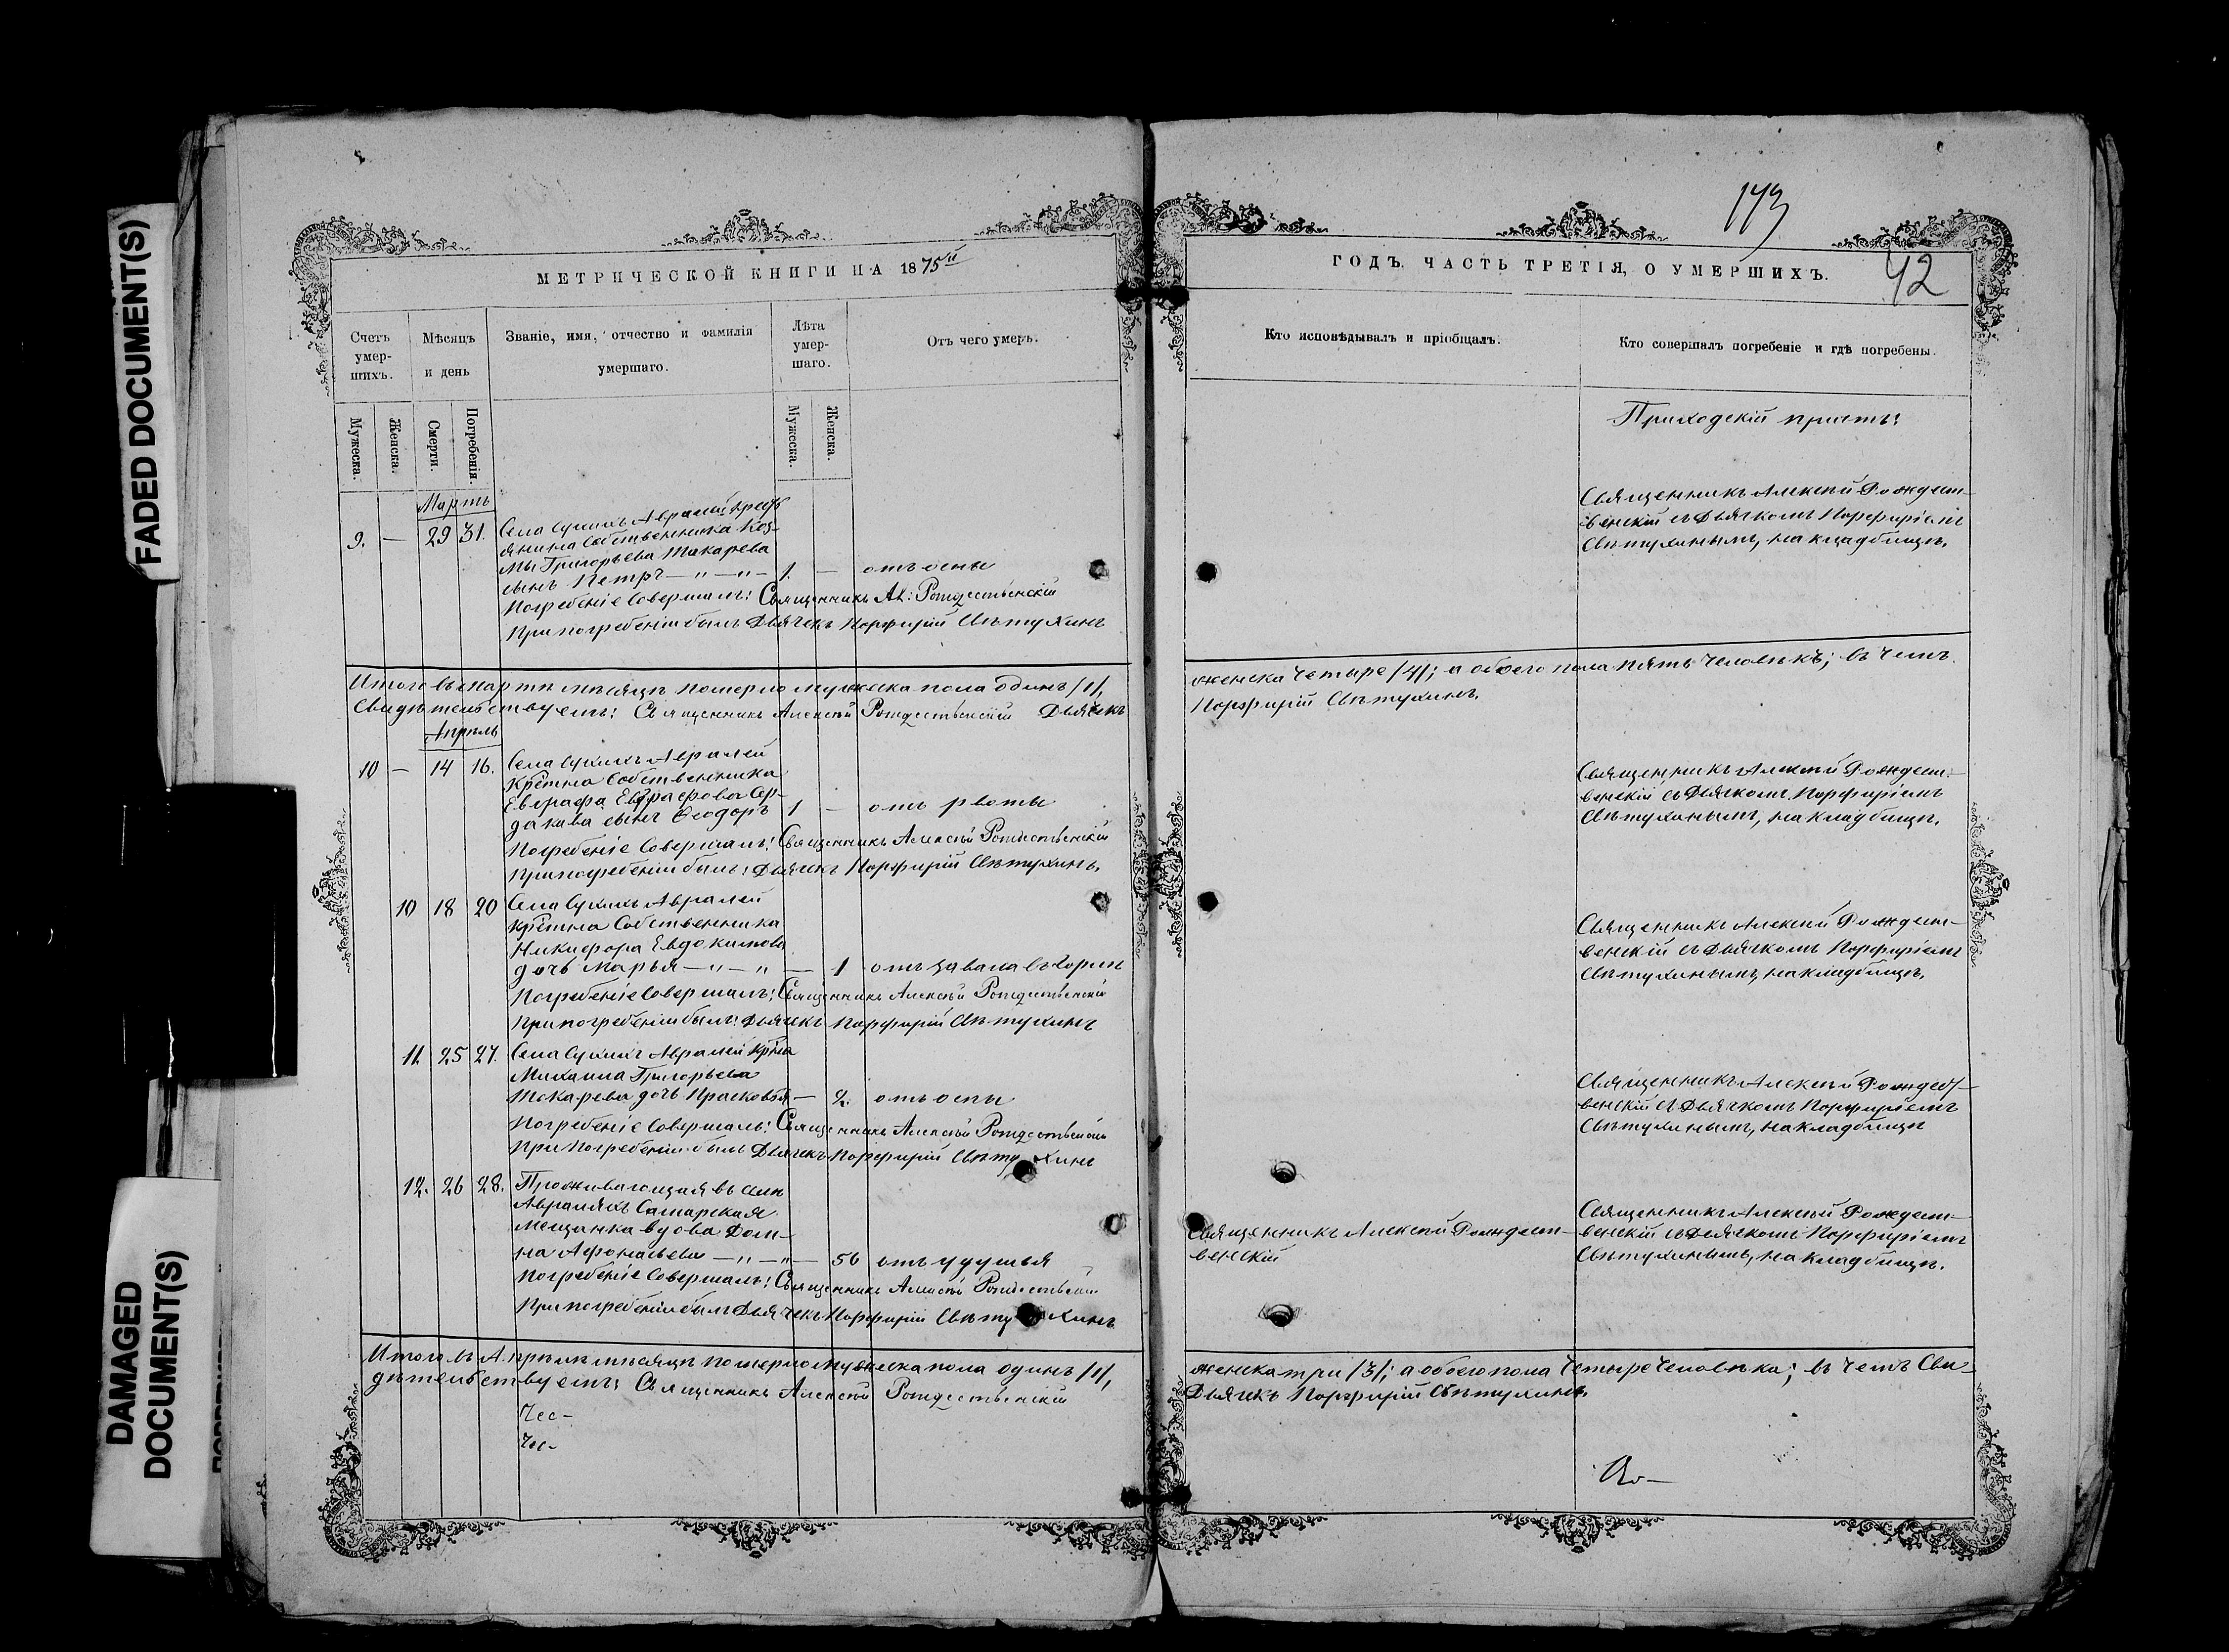 FADED DOCUMENT(S)
DAMAGED
DOCUMENT(S)
МЕТРИЧЕСКОЙ КНИГИ НА 1875й
Счетъ
умер-
шихъ.
Мѣсяцъ
и день
Званіе, имя, отчество и фамилія
умершаго.
Лѣта
умер-
шаго.
Отъ чего умеръ.
Мужеска.
Женска.
Смерти.
Погребенія.
Мужеска.
Женска.
Мартъ
9. — 29 31. Села Сухихъ Авралей Крестъ
янина собственника Коз-
мы Григорьева Токарева
сынъ Петръ —"—"— 1. — отъ оспы
Погребеніе совершалъ: Священникъ Ал: Рождественскій
При погребеніи былъ Дьячекъ Порфирій Свѣтухинъ
Итого въ Мартѣ мѣсяцѣ померло мужеска пола одинъ /1/,
Свидѣтельствуемъ: Священникъ Алексѣй Рождественскій Дьячекъ
Апрѣль
10 — 14 16. Села Сухихъ Авралей
Кретна Собственника
Евграфа Евграфова Сер-
дакова сынъ Ѳеодоръ 1 — отъ рвоты
Погребеніе совершалъ: Священникъ Алексѣй Рождественскій
При погребеніи былъ: Дьячекъ Порфирій Свѣтухинъ.
10 18 20 Села Сухихъ Авралей
кретна Собственника
Никифора Евдокимова
дочь Марья —"—"— 1 отъ завала въ горлѣ
Погребеніе совершалъ: Священникъ Алексѣй Рождественскій
При погребеніи былъ: Дьячекъ Порфирій Свѣтухинъ
11. 25 27. Села Сухихъ Авралей крна
Михаила Григорьева
Токарева дочь Прасковья — 2. отъ оспы
Погребеніе совершалъ: Священникъ Алексѣй Рождественскій
При погребеніи былъ Дьячекъ Порфирій Свѣтухинъ
12. 26 28. Проживающая въ селѣ
Авраляхъ Самарская
мещанка вдова Дом-
на Афонасьева —"—"— 56 отъ удушья
Погребеніе совершалъ: Священникъ Алексѣй Рождественскій
При погребеніи былъ Дьячекъ Порфирій Свѣтухинъ
Итого въ Апрѣлѣ мѣсяцѣ померло мужеска пола одинъ /1/,
дѣтельствуемъ: Священникъ Алексѣй Рождественскій
Чес-
Чес-
143
42
ГОДЪ. ЧАСТЬ ТРЕТІЯ, О УМЕРШИХЪ.
Кто исповѣдывалъ и пріобщалъ.
Кто совершалъ погребеніе и гдѣ погребены.
Приходскій причтъ:
Священникъ Алексѣй Рождест-
венскій съ Дьячкомъ Порфиріемъ
Свѣтухинымъ, на кладбищѣ.
женска четыре /4/; а обоего пола пять человѣкъ; въ чемъ
Порфирій Свѣтухинъ.
Священникъ Алексѣй Рождест-
венскій съ Дьячкомъ Порфиріемъ
Свѣтухинымъ, на кладбищѣ.
Священникъ Алексѣй Рождест-
венскій съ Дьячкомъ Порфиріемъ
Свѣтухинымъ, на кладбищѣ.
Священникъ Алексѣй Рождест-
венскій съ Дьячкомъ Порфиріемъ
Свѣтухинымъ, на кладбищѣ
Священникъ Алексѣй Рождест-
венскій
Священникъ Алексѣй Рождест-
венскій съ Дьячкомъ Порфиріемъ
Свѣтухинымъ, на кладбищѣ.
женска три /3/; а обоего пола четыре человѣка; въ чемъ Сви-
Дьячекъ Порфирій Свѣтухинъ.